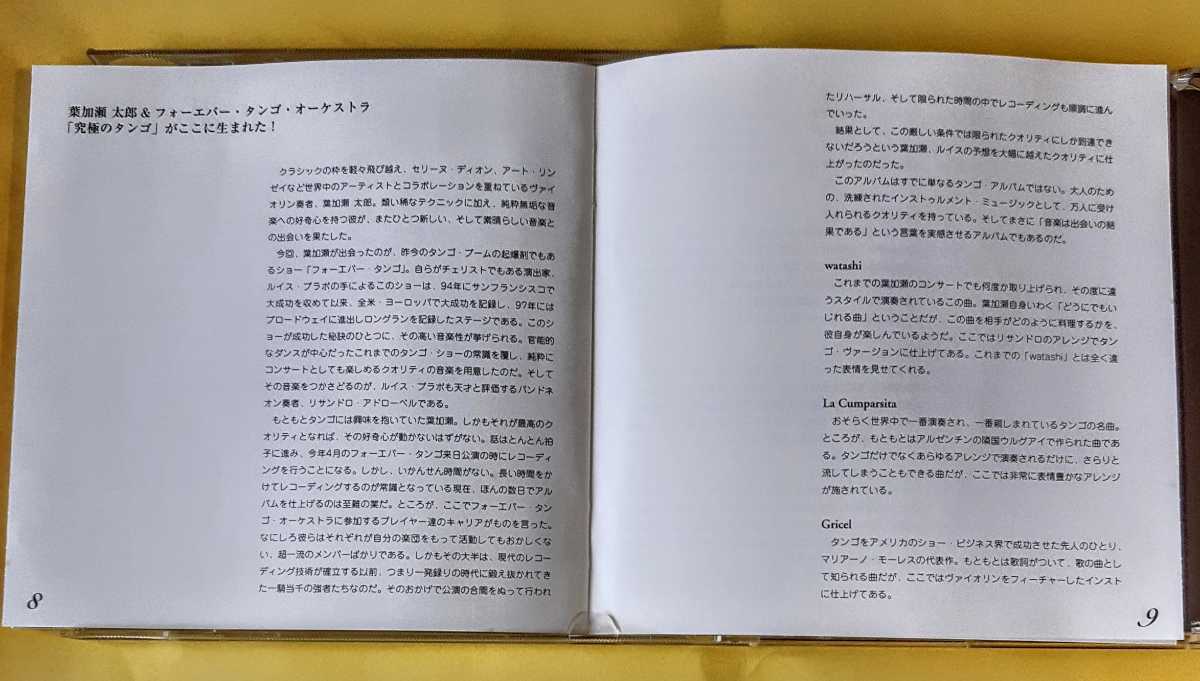 葉加瀬 太郎 & フォーエバー・タンゴ・オーケストラ
「究極のタンゴ」がここに生まれた！
クラシックの枠を軽々飛び越え、セリーヌ・ディオン、アート・リン
ゼイなど世界中のアーティストとコラボレーションを重ねているヴァイ
オリン奏者、葉加瀬 太郎。類い稀なテクニックに加え、純粋無垢な音
楽への好奇心を持つ彼が、またひとつ新しい、そして素晴らしい音楽と
の出会いを果たした。
今回、葉加瀬が出会ったのが、昨今のタンゴ・ブームの起爆剤でもあ
るショー「フォーエバー・タンゴ」。自らがチェリストでもある演出家、
ルイス・ブラボの手によるこのショーは、94年にサンフランシスコで
大成功を収めて以来、全米・ヨーロッパで大成功を記録し、97年には
ブロードウェイに進出しロングランを記録したステージである。このシ
ョーが成功した秘訣のひとつに、その高い音楽性が挙げられる。官能的
なダンスが中心だったこれまでのタンゴ・ショーの常識を覆し、純粋に
コンサートとしても楽しめるクオリティの音楽を用意したのだ。そして
その音楽をつかさどるのが、ルイス・ブラボも天才と評価するバンドネ
オン奏者、リサンドロ・アドローベルである。
もともとタンゴには興味を抱いていた葉加瀬。しかもそれが最高のク
オリティとなれば、その好奇心が動かないはずがない。話はとんとん拍
子に進み、今年4月のフォーエバー・タンゴ来日公演の時にレコーディ
ングを行うことになる。しかし、いかんせん時間がない。長い時間をか
けてレコーディングするのが常識となっている現在、ほんの数日でアル
バムを仕上げるのは至難の業だ。ところが、ここでフォーエバー・タン
ゴ・オーケストラに参加するプレイヤー達のキャリアがものを言った。
なにしろ彼らはそれぞれが自分の楽団をもって活動してもおかしくな
い、超一流のメンバーばかりである。しかもその大半は、現代のレコー
ディング技術が確立する以前、つまり一発録りの時代に鍛え抜かれてき
た一騎当千の強者たちなのだ。そのおかげで公演の合間をぬって行われ
8
たリハーサル、そして限られた時間の中でレコーディングも順調に進ん
でいった。
結果として、この厳しい条件では限られたクオリティにしか到達でき
ないだろうという葉加瀬、ルイスの予想を大幅に越えたクオリティに仕
上がったのだった。
このアルバムはすでに単なるタンゴ・アルバムではない。大人のため
の、洗練されたインストゥルメント・ミュージックとして、万人に受け
入れられるクオリティを持っている。そしてまさに「音楽は出会いの結
果である」という言葉を実感させるアルバムでもあるのだ。
watashi
これまでの葉加瀬のコンサートでも何度か取り上げられ、その度に違
うスタイルで演奏されているこの曲。葉加瀬自身いわく「どうにでもい
じれる曲」ということだが、この曲を相手がどのように料理するかを、
彼自身が楽しんでいるようだ。ここではリサンドロのアレンジでタン
ゴ・ヴァージョンに仕上げてある。これまでの「watashi」とは全く違
った表情を見せてくれる。
La Cumparsita
おそらく世界中で一番演奏され、一番親しまれているタンゴの名曲。
ところが、もともとはアルゼンチンの隣国ウルグアイで作られた曲であ
る。タンゴだけでなくあらゆるアレンジで演奏されるだけに、さらりと
流してしまうこともできる曲だが、ここでは非常に表情豊かなアレンジ
が施されている。
Gricel
タンゴをアメリカのショー・ビジネス界で成功させた先人のひとり、
マリアーノ・モーレスの代表作。もともとは歌詞がついて、歌の曲とし
て知られる曲だが、ここではヴァイオリンをフィーチャーしたインスト
に仕上げてある。
9